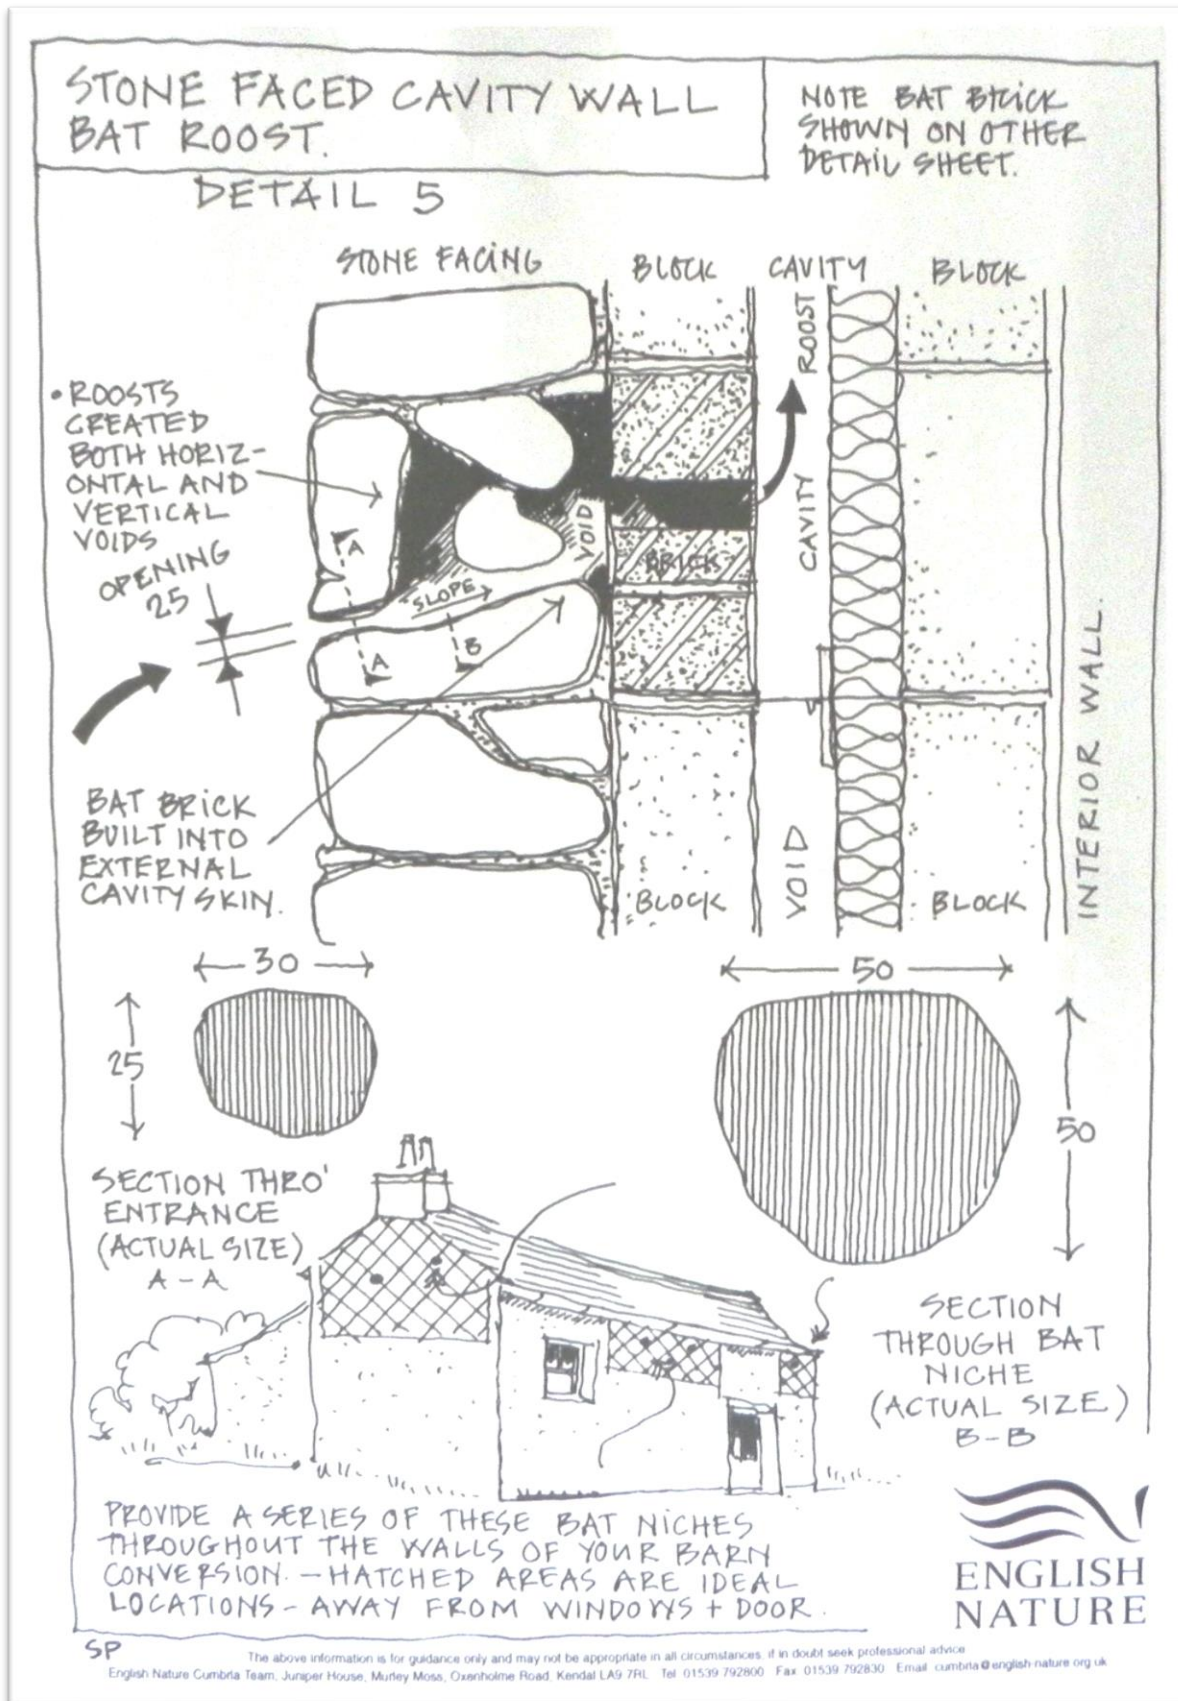 STONE FACED CAVITY WALL
BAT ROOST.
NOTE BAT BRICK
SHOWN ON OTHER
DETAIL SHEET.
DETAIL 5
STONE FACING
BLOCK
CAVITY
BLOCK
• ROOSTS
CREATED
BOTH HORIZ-
ONTAL AND
VERTICAL
VOIDS
OPENING
25
A
A
SLOPE
B
VOID
BRICK
CAVITY ROOST
VOID
BLOCK
BLOCK
INTERIOR WALL.
BAT BRICK
BUILT INTO
EXTERNAL
CAVITY SKIN.
30
25
50
50
SECTION THRO'
ENTRANCE
(ACTUAL SIZE)
A-A
SECTION
THROUGH BAT
NICHE
(ACTUAL SIZE)
B-B
PROVIDE A SERIES OF THESE BAT NICHES
THROUGHOUT THE WALLS OF YOUR BARN
CONVERSION. - HATCHED AREAS ARE IDEAL
LOCATIONS - AWAY FROM WINDOWS + DOOR.
ENGLISH
NATURE
SP
The above information is for guidance only and may not be appropriate in all circumstances, if in doubt seek professional advice
English Nature Cumbria Team, Juniper House, Murley Moss, Oxenholme Road, Kendal LA9 7RL Tel 01539 792800 Fax 01539 792830 Email cumbria@english-nature.org.uk